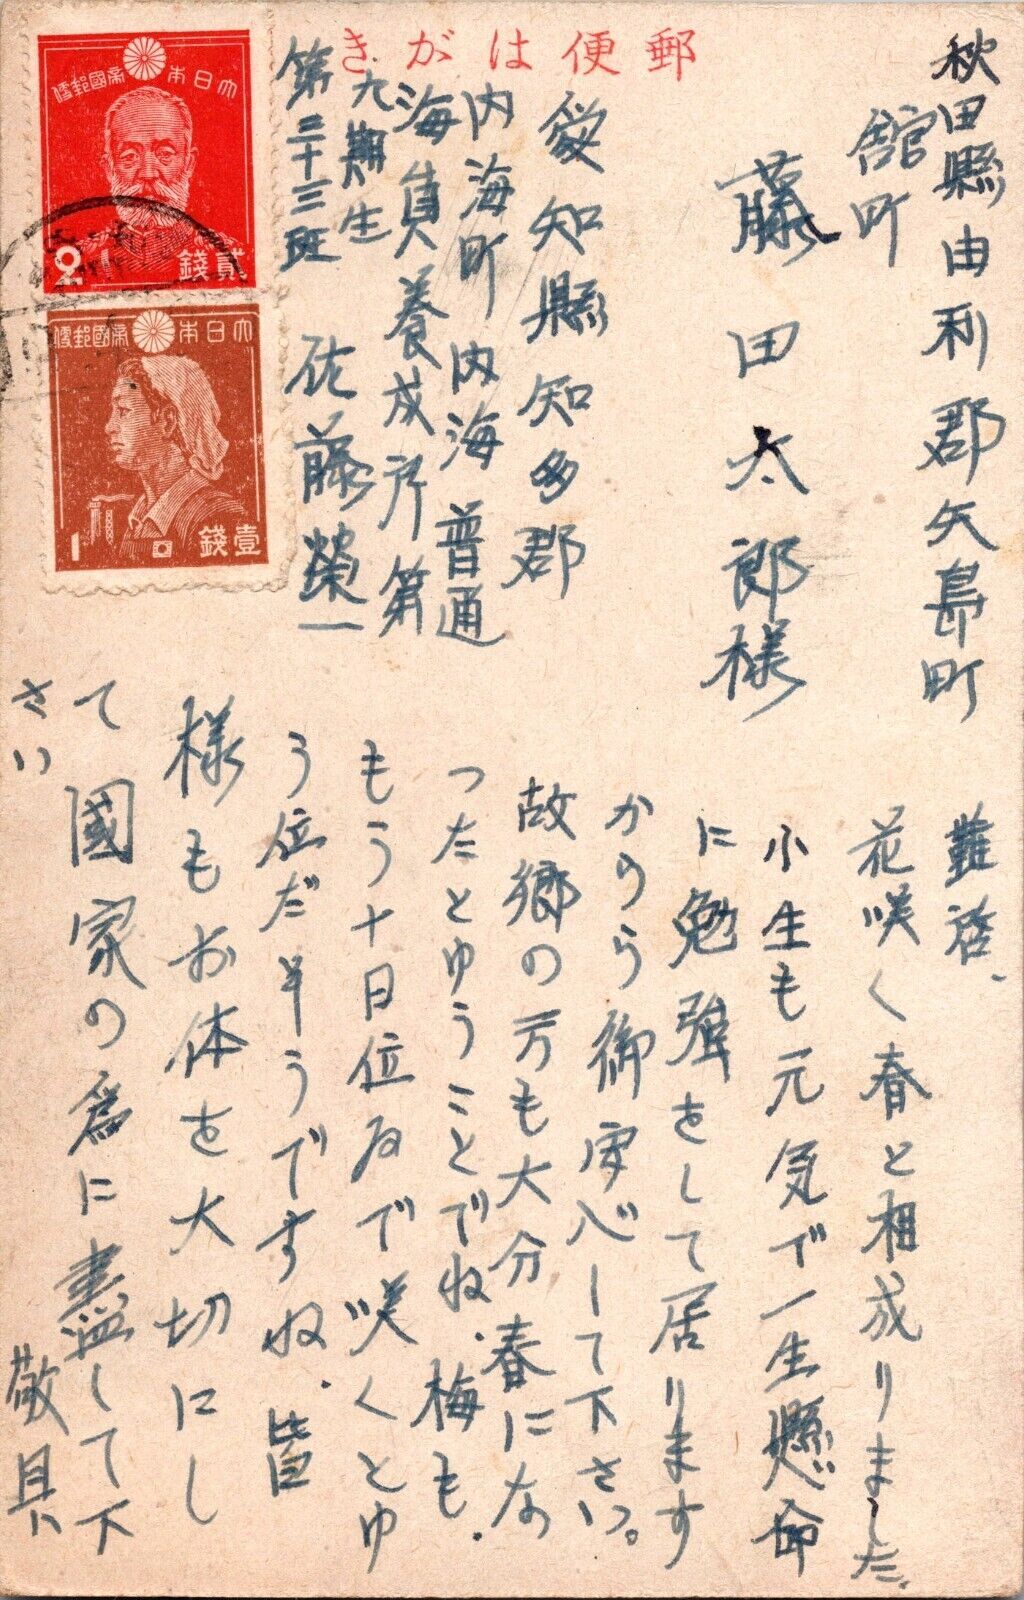 郵便はがき
秋田縣由利郡矢島町
舘町
藤田太郎様
愛知縣知多郡
内海町内海普通
海員養成所第
九期生
第三十三班 佐藤榮一
大日本帝國郵便
貳錢
2
大日本帝國郵便
壹錢
1
謹啓、
花咲く春と相成りました、
小生も元気で一生懸命
に勉強をして居ります
から御安心して下さい。
故郷の方も大分春にな
つたとゆうことでね、梅も
もう十日位ゐで咲くとゆ
う位だそうですね、皆
様もお体を大切にし
て國家の為に盡して下
さい
敬具